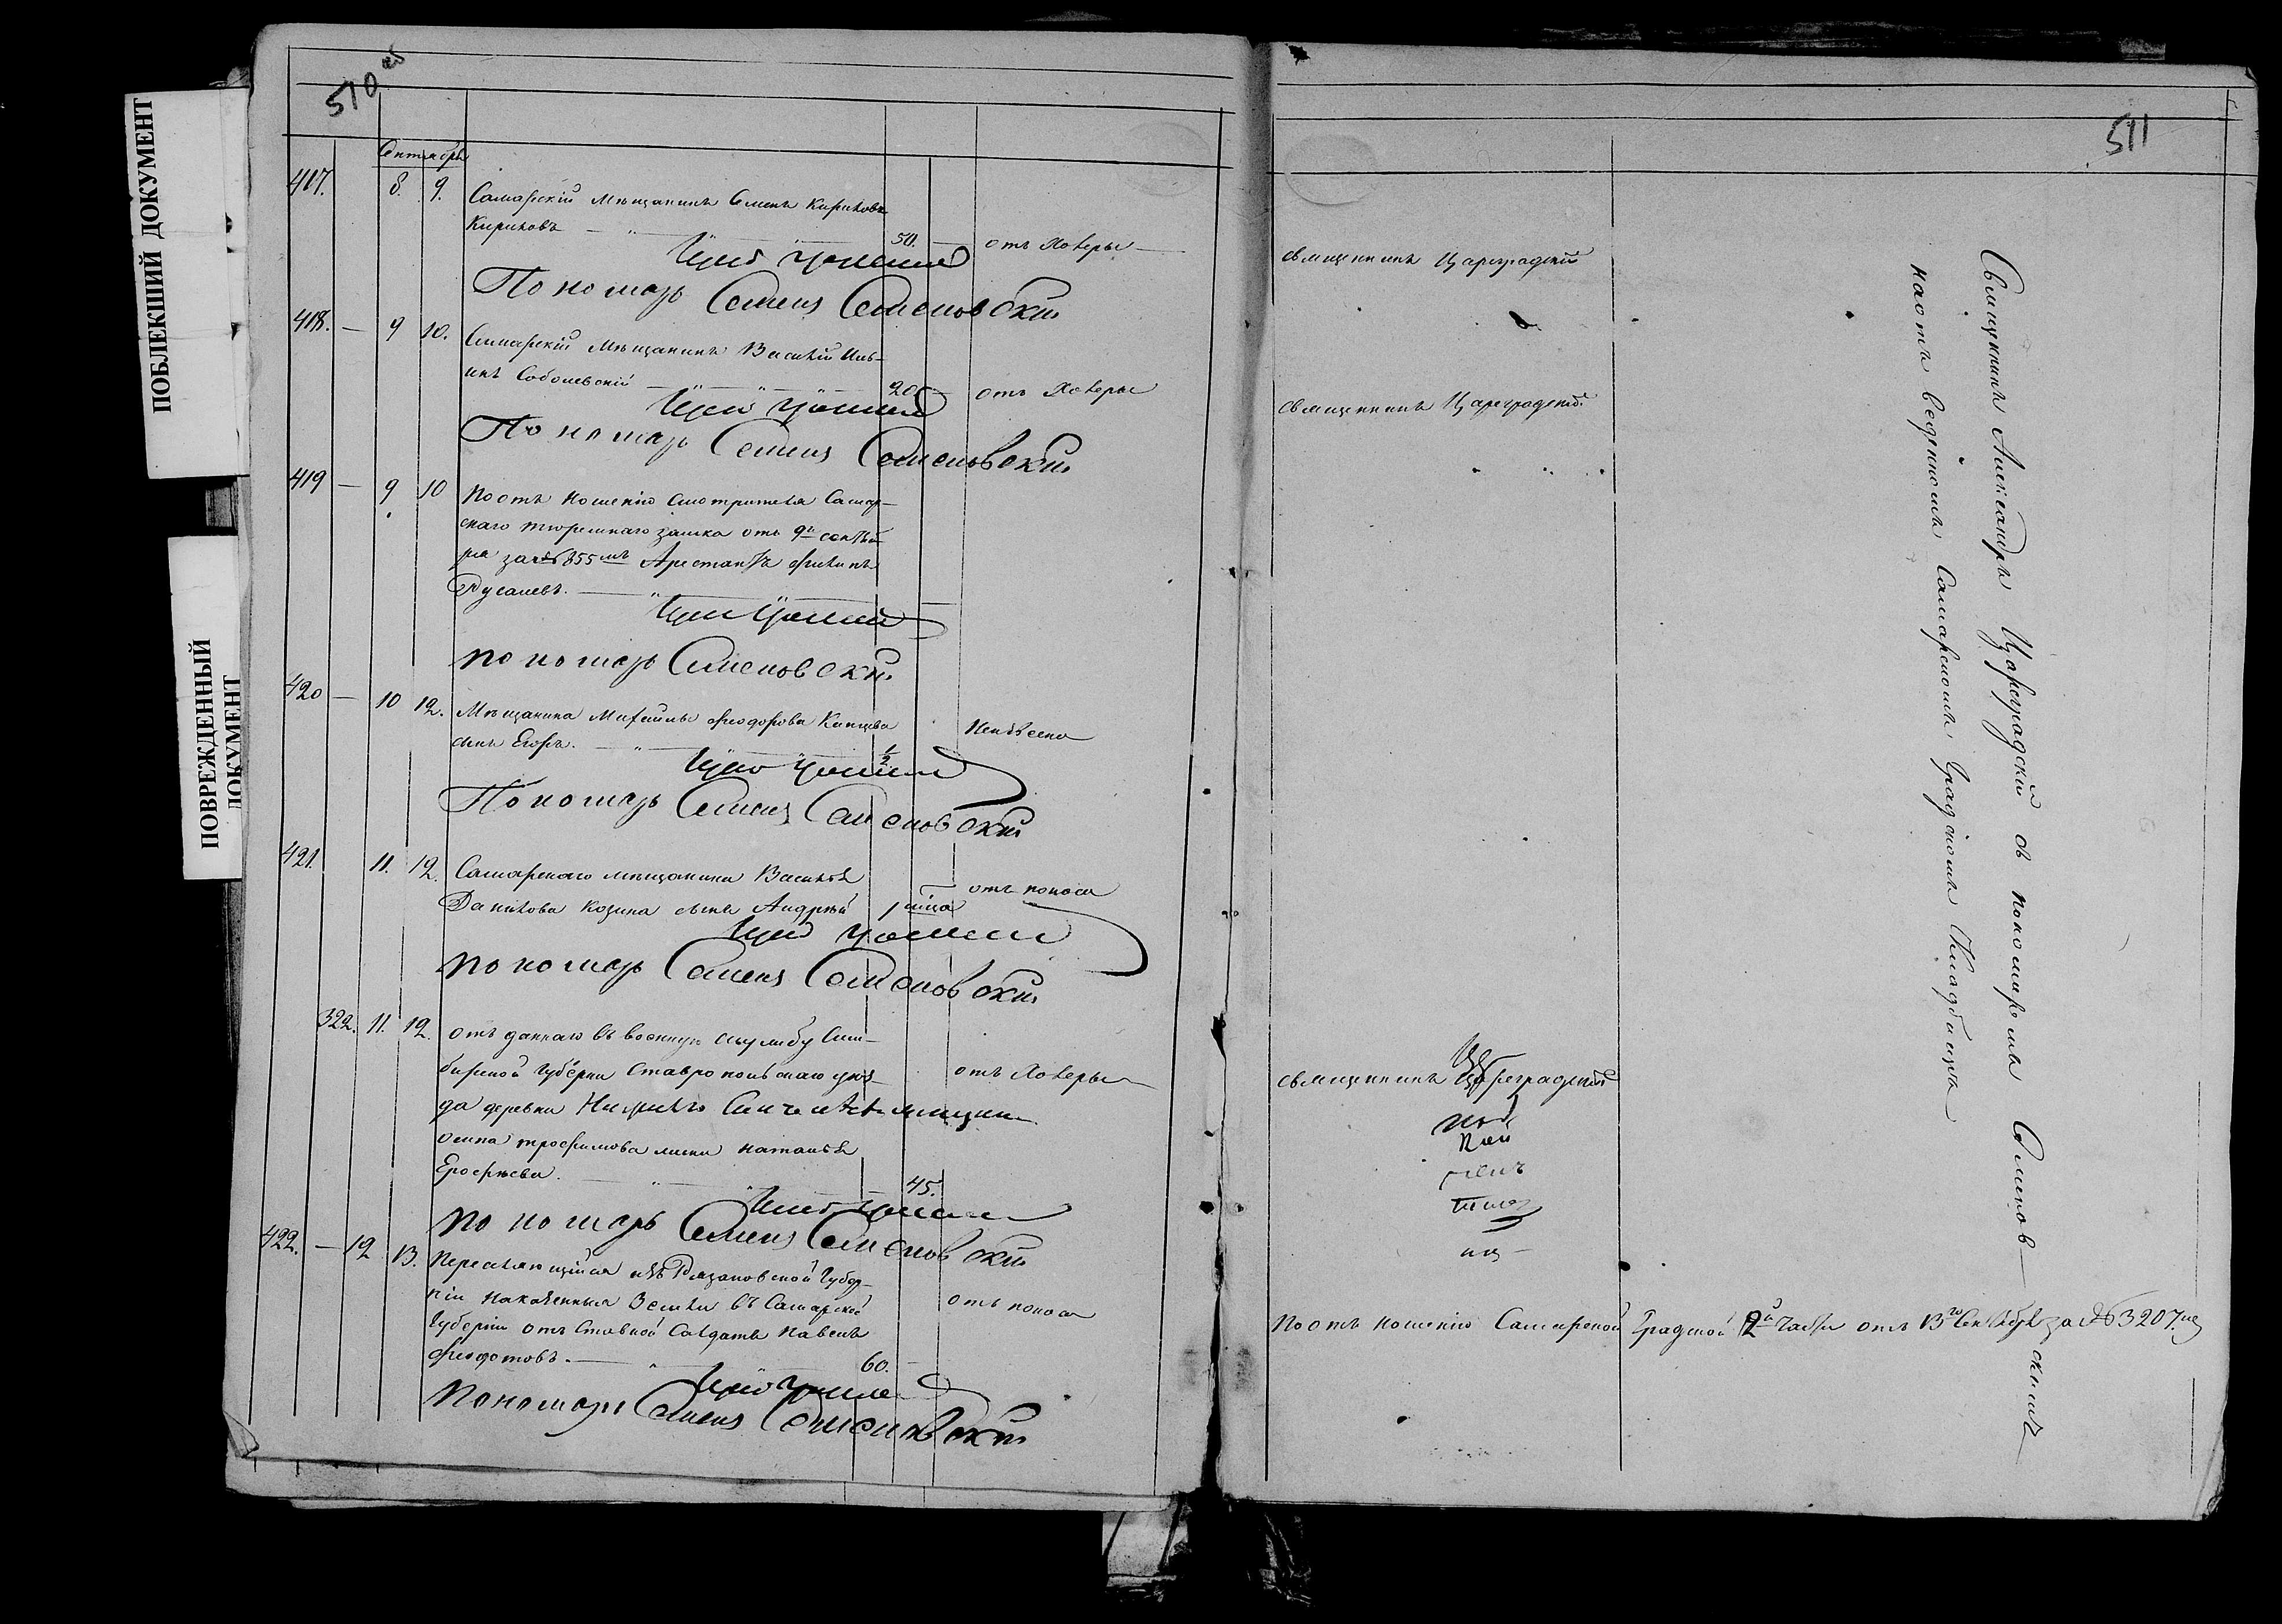 ПОБЛЕКШИЙ ДОКУМЕНТ
ПОВРЕЖДЕННЫЙ
ДОКУМЕНТ
510 об
Сентябрь
417. 8. 9. Самарскій мѣщанинъ Семенъ Кириловъ
Кириловъ 50. отъ Холеры
Пономарь Семенъ Семеновскій
418. — 9 10. Самарскій мѣщанинъ Василій Иль-
инъ Соболевскій 20 отъ Холеры
Пономарь Семенъ Семеновскій
419 — 9 10 По отъ ношенію Смотрителя Самар-
скаго тюремнаго замка отъ 9го сентяб-
ря за № 855мъ Арестантъ Филипъ
Русалевъ.
пономарь Семеновскій
420 — 10 12. Мѣщанина Михаилы Феодорова
сынъ Егоръ. 1/2 Неизвѣсно
Пономарь Семенъ Семеновскій
421. 11. 12. Самарскаго мѣщанина Василья
Данилова Козина сынъ Андрей 1 мѣца отъ поноса
пономарь Семенъ Семеновскій
322. 11. 12. отъ даннаго въ военную службу Сим-
бирской губерніи Ставропольскаго уѣз-
да деревни
осипа трофимова жена наталья
Ерофѣева. 45. отъ Холеры
пономарь Семенъ Семеновскій
422. — 12 13. Переселяющійся изъ Рязановской Губер-
ніи на казенныя Земли въ Самарской
Губерніи отъ Ставной Салдатъ Павелъ
Феодотовъ. 60. отъ поноса
Пономарь Семенъ Семеновскій
511
священникъ Цареградскій
священникъ Цареградскій
священникъ Цареградскій
По отъ ношенію Самарской Градской 2й Части отъ 13го Сентября за № 3207мъ
Священникъ Александръ Цареградскій съ пономаремъ Семеновскимъ
на отъ веденномъ Самарскомъ Градскомъ Кладбищѣ